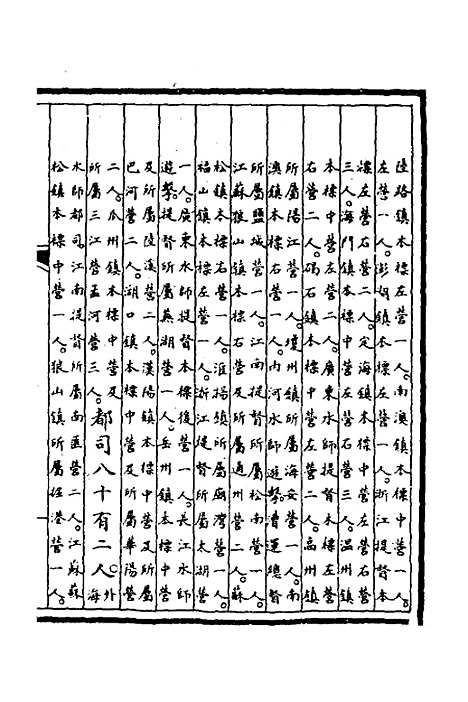 陸路鎮本標左營一人。南澳鎮本標中營一人。
左營一人。澎湖鎮本標左營一人。浙江提督本
標左營右營二人。定海鎮本標中營左營
三人。海門鎮本標中營左營三人。溫州鎮
本標中營左營二人。廣東水師提督本標左營
右營二人。碣石鎮本標中營左營二人。高州鎮
所屬陽江營一人。瓊州鎮所屬海安營一人。南
澳鎮本標右營一人。內河水師遊擊漕運總督
所屬鹽城營一人。江南提督所屬松南營一人。
江蘇狼山鎮本標右營及所屬通州營二人。蘇
松鎮本標右營一人。淮揚鎮所屬廟灣營一人。
福山鎮本標左營一人。浙江提督所屬太湖營
一人。廣東水師提督本標後營一人。長江水師
遊擊。提督所屬蕪湖營一人。岳州鎮本標中營
及所屬陸溪營二人。漢陽鎮本標中營及所屬
巴河營二人。湖口鎮本標中營及所屬華陽營
二人。瓜州鎮本標中營及
所屬三江營孟河營三人。都司八十有二人。外海
水師都司。江南提督所屬南匯營二人。江蘇蘇
松鎮本標中營一人。狼山鎮所屬徑港營一人。